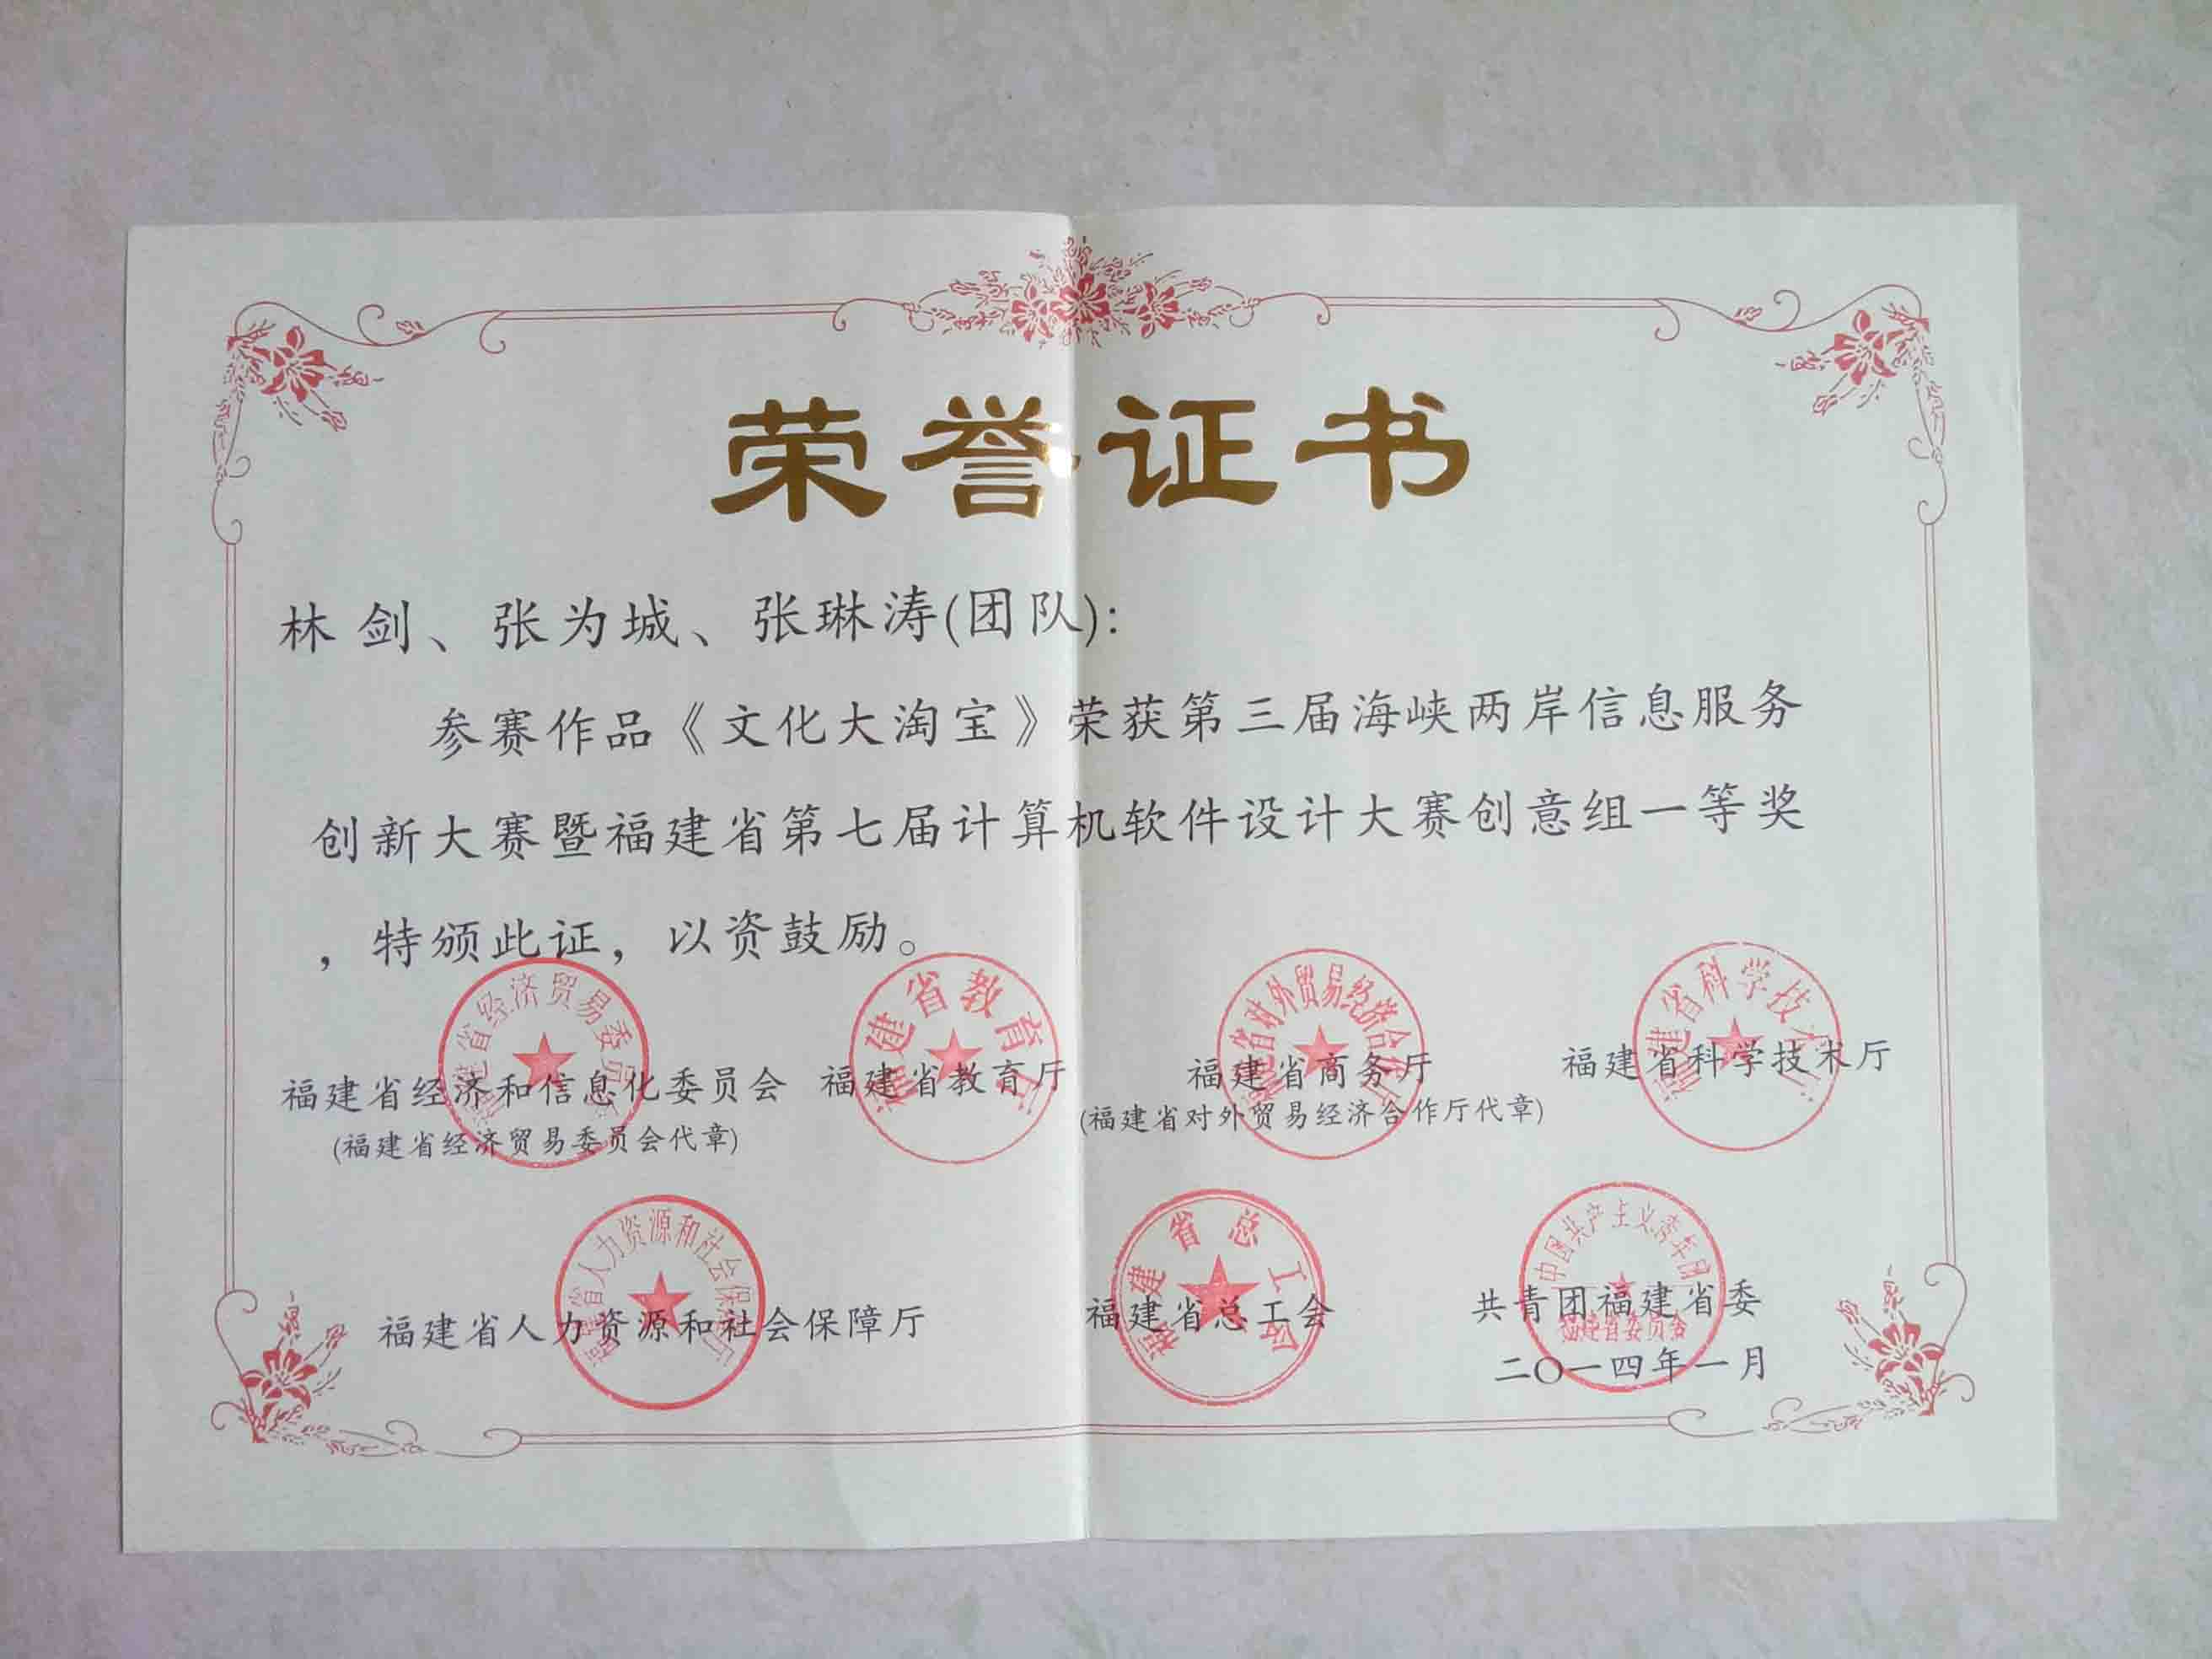 荣誉证书
林剑、张为城、张琳涛(团队):
参赛作品《文化大淘宝》荣获第三届海峡两岸信息服务
创新大赛暨福建省第七届计算机软件设计大赛创意组一等奖
，特颁此证，以资鼓励。
福建省经济贸易委员会
福建省教育厅
福建省对外贸易经济合作厅
福建省科学技术厅
福建省经济和信息化委员会 福建省教育厅 福建省商务厅 福建省科学技术厅
(福建省经济贸易委员会代章) (福建省对外贸易经济合作厅代章)
福建省人力资源和社会保障厅
福建省总工会
中国共产主义青年团
福建省委员会
福建省人力资源和社会保障厅 福建省总工会 共青团福建省委
二〇一四年一月